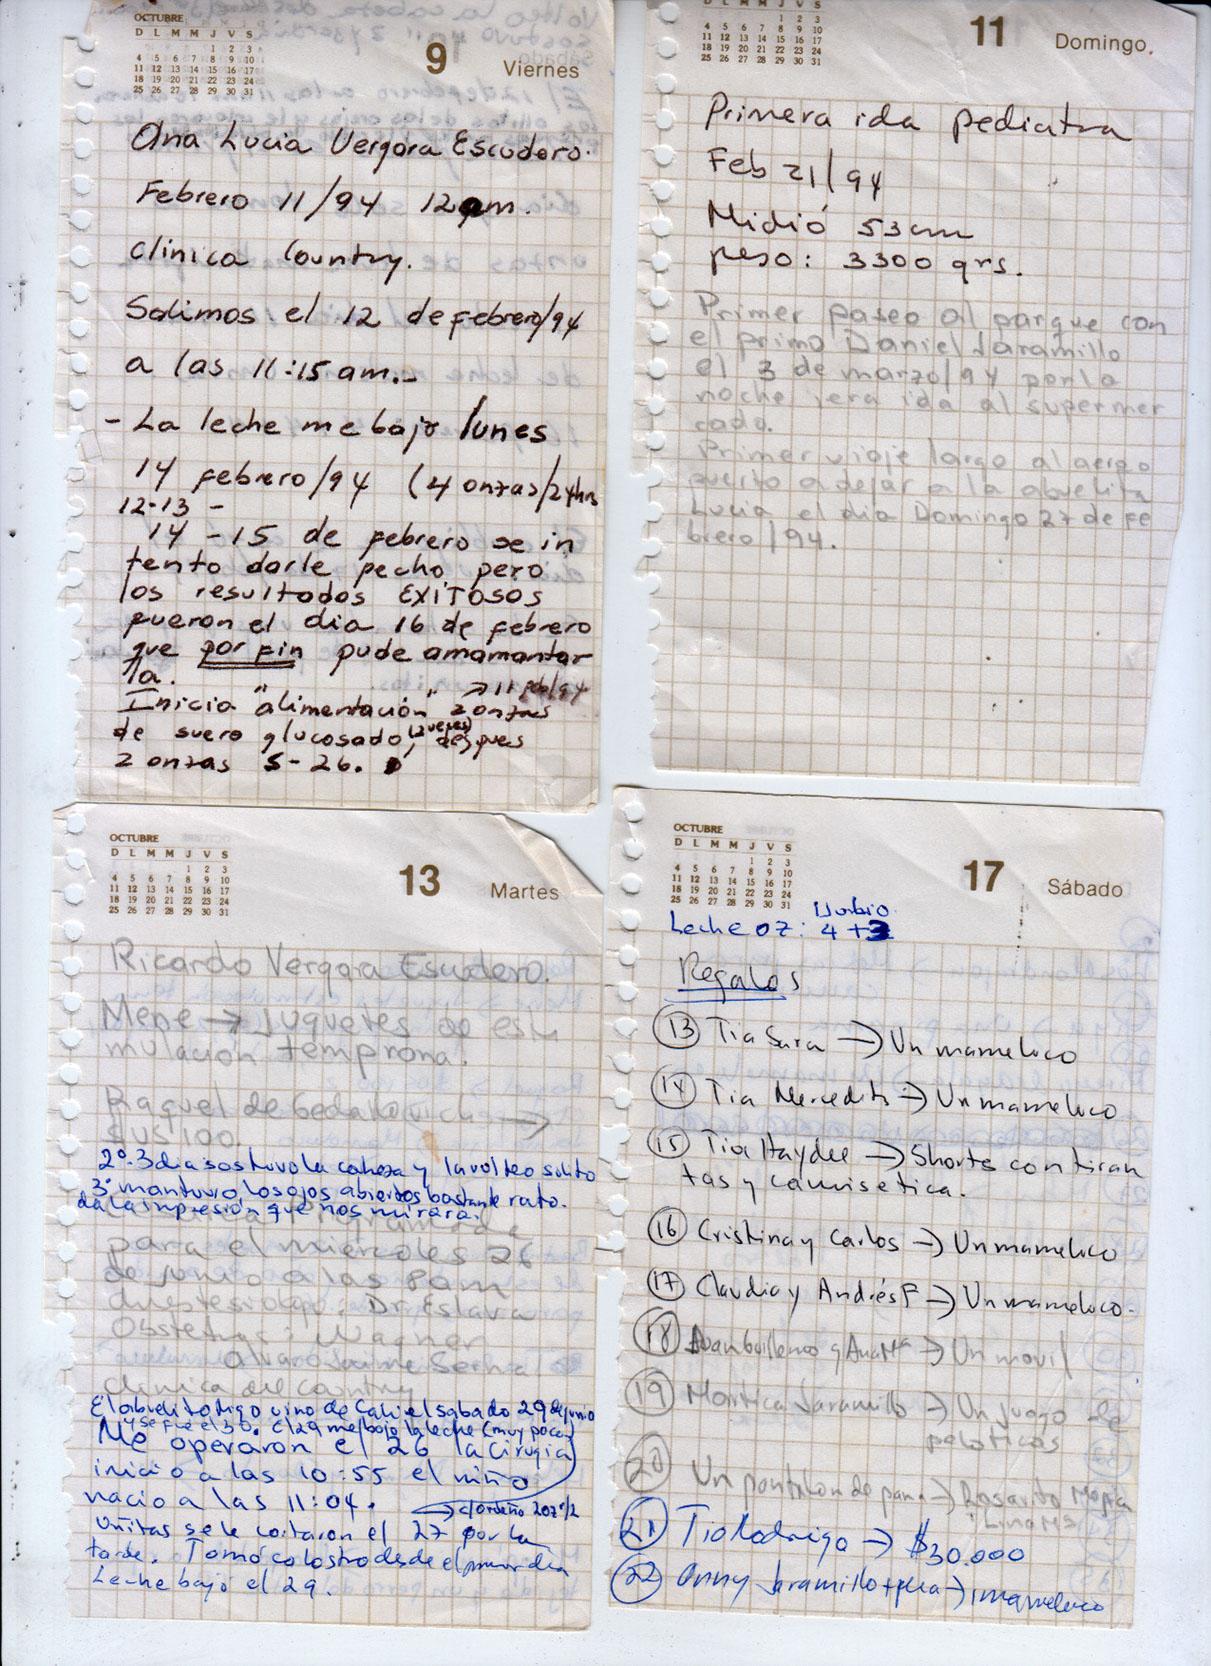 OCTUBRE
D L M M J V S
1 2 3
4 5 6 7 8 9 10
11 12 13 14 15 16 17
18 19 20 21 22 23 24
25 26 27 28 29 30 31
9 Viernes
Ana Lucia Vergara Escudero.
Febrero 11/94 12 m.
Clinica Country.
Salimos el 12 de febrero/94
a las 11:15 am.-
- La leche me bajo lunes
14 febrero/94 (4 onzas/24hrs
12-13 -
14 -15 de febrero se in
tento darle pecho pero
los resultados EXITOSOS
fueron el dia 16 de febrero
que por fin pude amamantar
la.
Inicia "alimentación" → 11 feb/94
2 onzas
de suero glucosado, (2 veces) despues
2 onzas S-26.
D L M M J V S
1 2 3
4 5 6 7 8 9 10
11 12 13 14 15 16 17
18 19 20 21 22 23 24
25 26 27 28 29 30 31
11 Domingo
Primera ida pediatra
Feb 21/94
Midió 53 cm
peso: 3300 grs.
Primer paseo al parque con
el primo Daniel Jaramillo
el 3 de marzo/94 por la
noche, 1era ida al supermer
cado.
Primer viaje largo al aerpo
puerto a dejar a la abuelita
Lucia el dia Domingo 27 de fe
brero/94.
OCTUBRE
D L M M J V S
1 2 3
4 5 6 7 8 9 10
11 12 13 14 15 16 17
18 19 20 21 22 23 24
25 26 27 28 29 30 31
13 Martes
Ricardo Vergara Escudero.
Mepe → Juguetes de esti
mulación temprana.
Raquel de →
$US 100.
2º-3 dia sostuvo la cabeza y la volteo solito
3º mantuvo los ojos abiertos bastante rato.
da la impresión que nos mirara.
para el miércoles 26
de junio a las 8am
Dr. Eslava
Obstetras: Wagner
Alvaro Jaime Serna
clinica del Country
El abuelito Rigo vino de Cali el sabado 29 de junio
y se fue el 30. El 29 me bajo la leche (muy poca)
Me operaron el 26 la cirugia
inicio a las 10:55 el niño
nacio a las 11:04. →
Uñitas se le cortaron el 27 por la
tarde. Tomó calostro desde el primer dia
Leche bajó el 29.
OCTUBRE
D L M M J V S
1 2 3
4 5 6 7 8 9 10
11 12 13 14 15 16 17
18 19 20 21 22 23 24
25 26 27 28 29 30 31
17 Sábado
Leche oz: 4+3
Regalos
13 Tia Sara → Un mameluco
14 Tia Mercedes → Un mameluco
15 Tia Haydee → Shorts con tiran
tas y camisetica.
16 Cristina y Carlos → Un mameluco
17 Claudia y Andrés F → Un mameluco.
18 Juan Guillermo y Ana Ma → Un movil
19 Martica Jaramillo → Un juego de
peloticas
20 Un pantalon de pana → Rosarito
Linares
21 Tio Rodrigo → $30.000
22 Anny Jaramillo → 1 mameluco